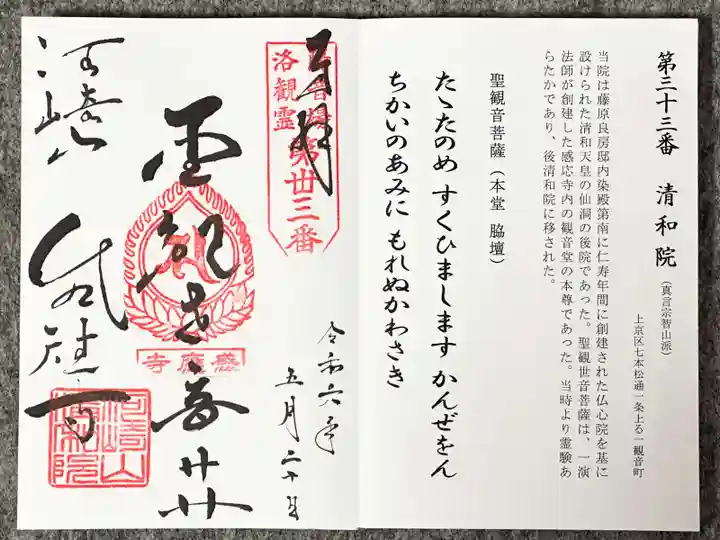 第三十三番 清和院
(真言宗智山派)
上京区七本松通一条上る一観音町
当院は藤原良房邸内染殿第南に仁寿年間に創建された仏心院を基に
設けられた清和天皇の仙洞の後院であった。聖観世音菩薩は、一演
法師が創建した感応寺内の観音堂の本尊であった。当時より霊験あ
らたかであり、後清和院に移された。
聖観音菩薩(本堂 脇壇)
たゝたのめ すくひまします かんぜをん
ちかいのあみに もれぬかわさき
奉拝
洛観霊
第丗三番
令和六年
五月二十日
感應寺
河崎